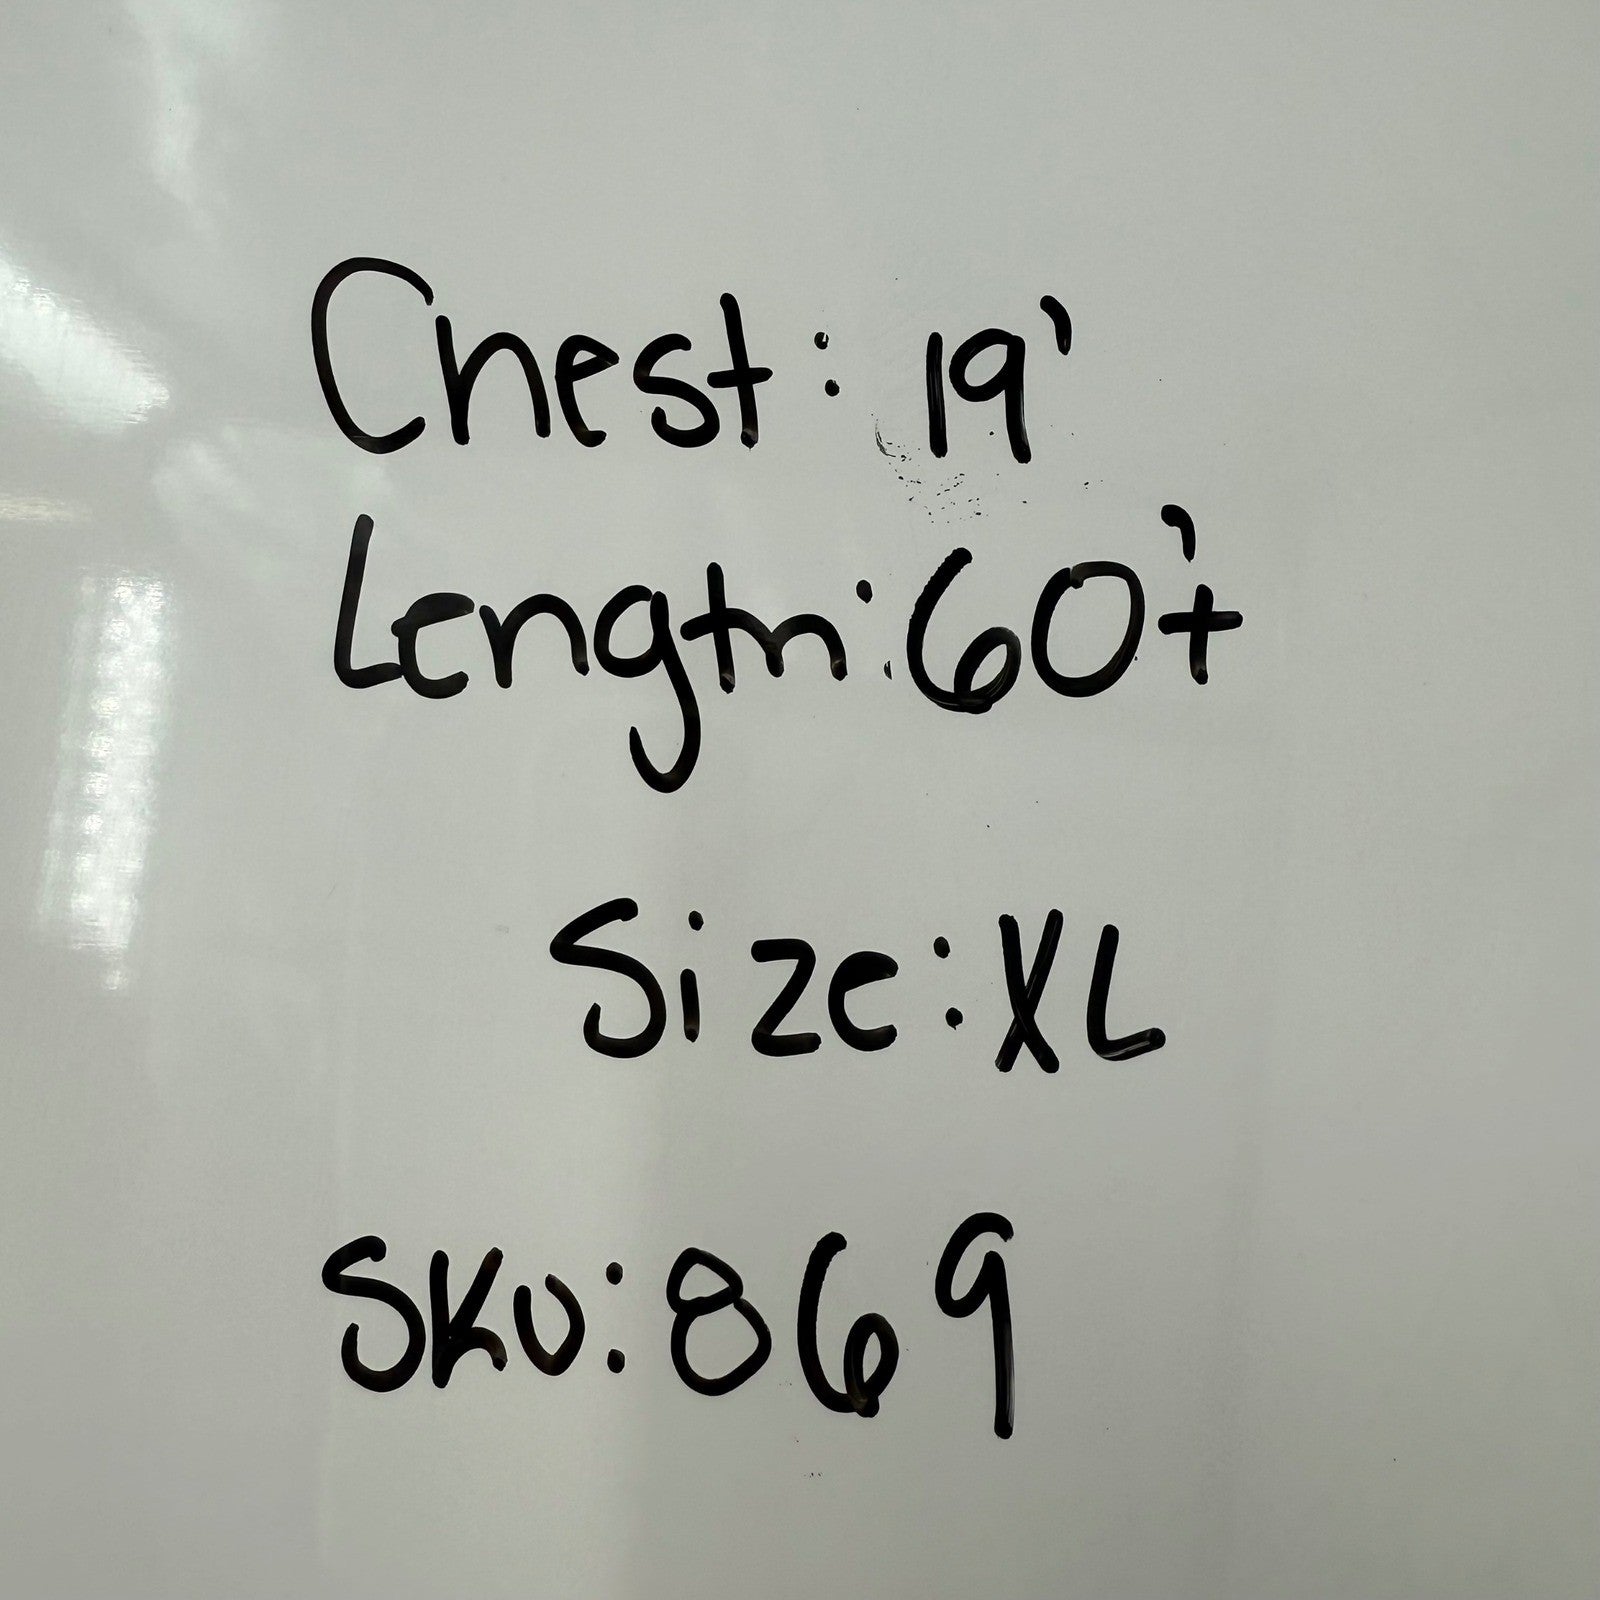 Chest: 19'
Length: 60'+
Size: XL
SKU: 869